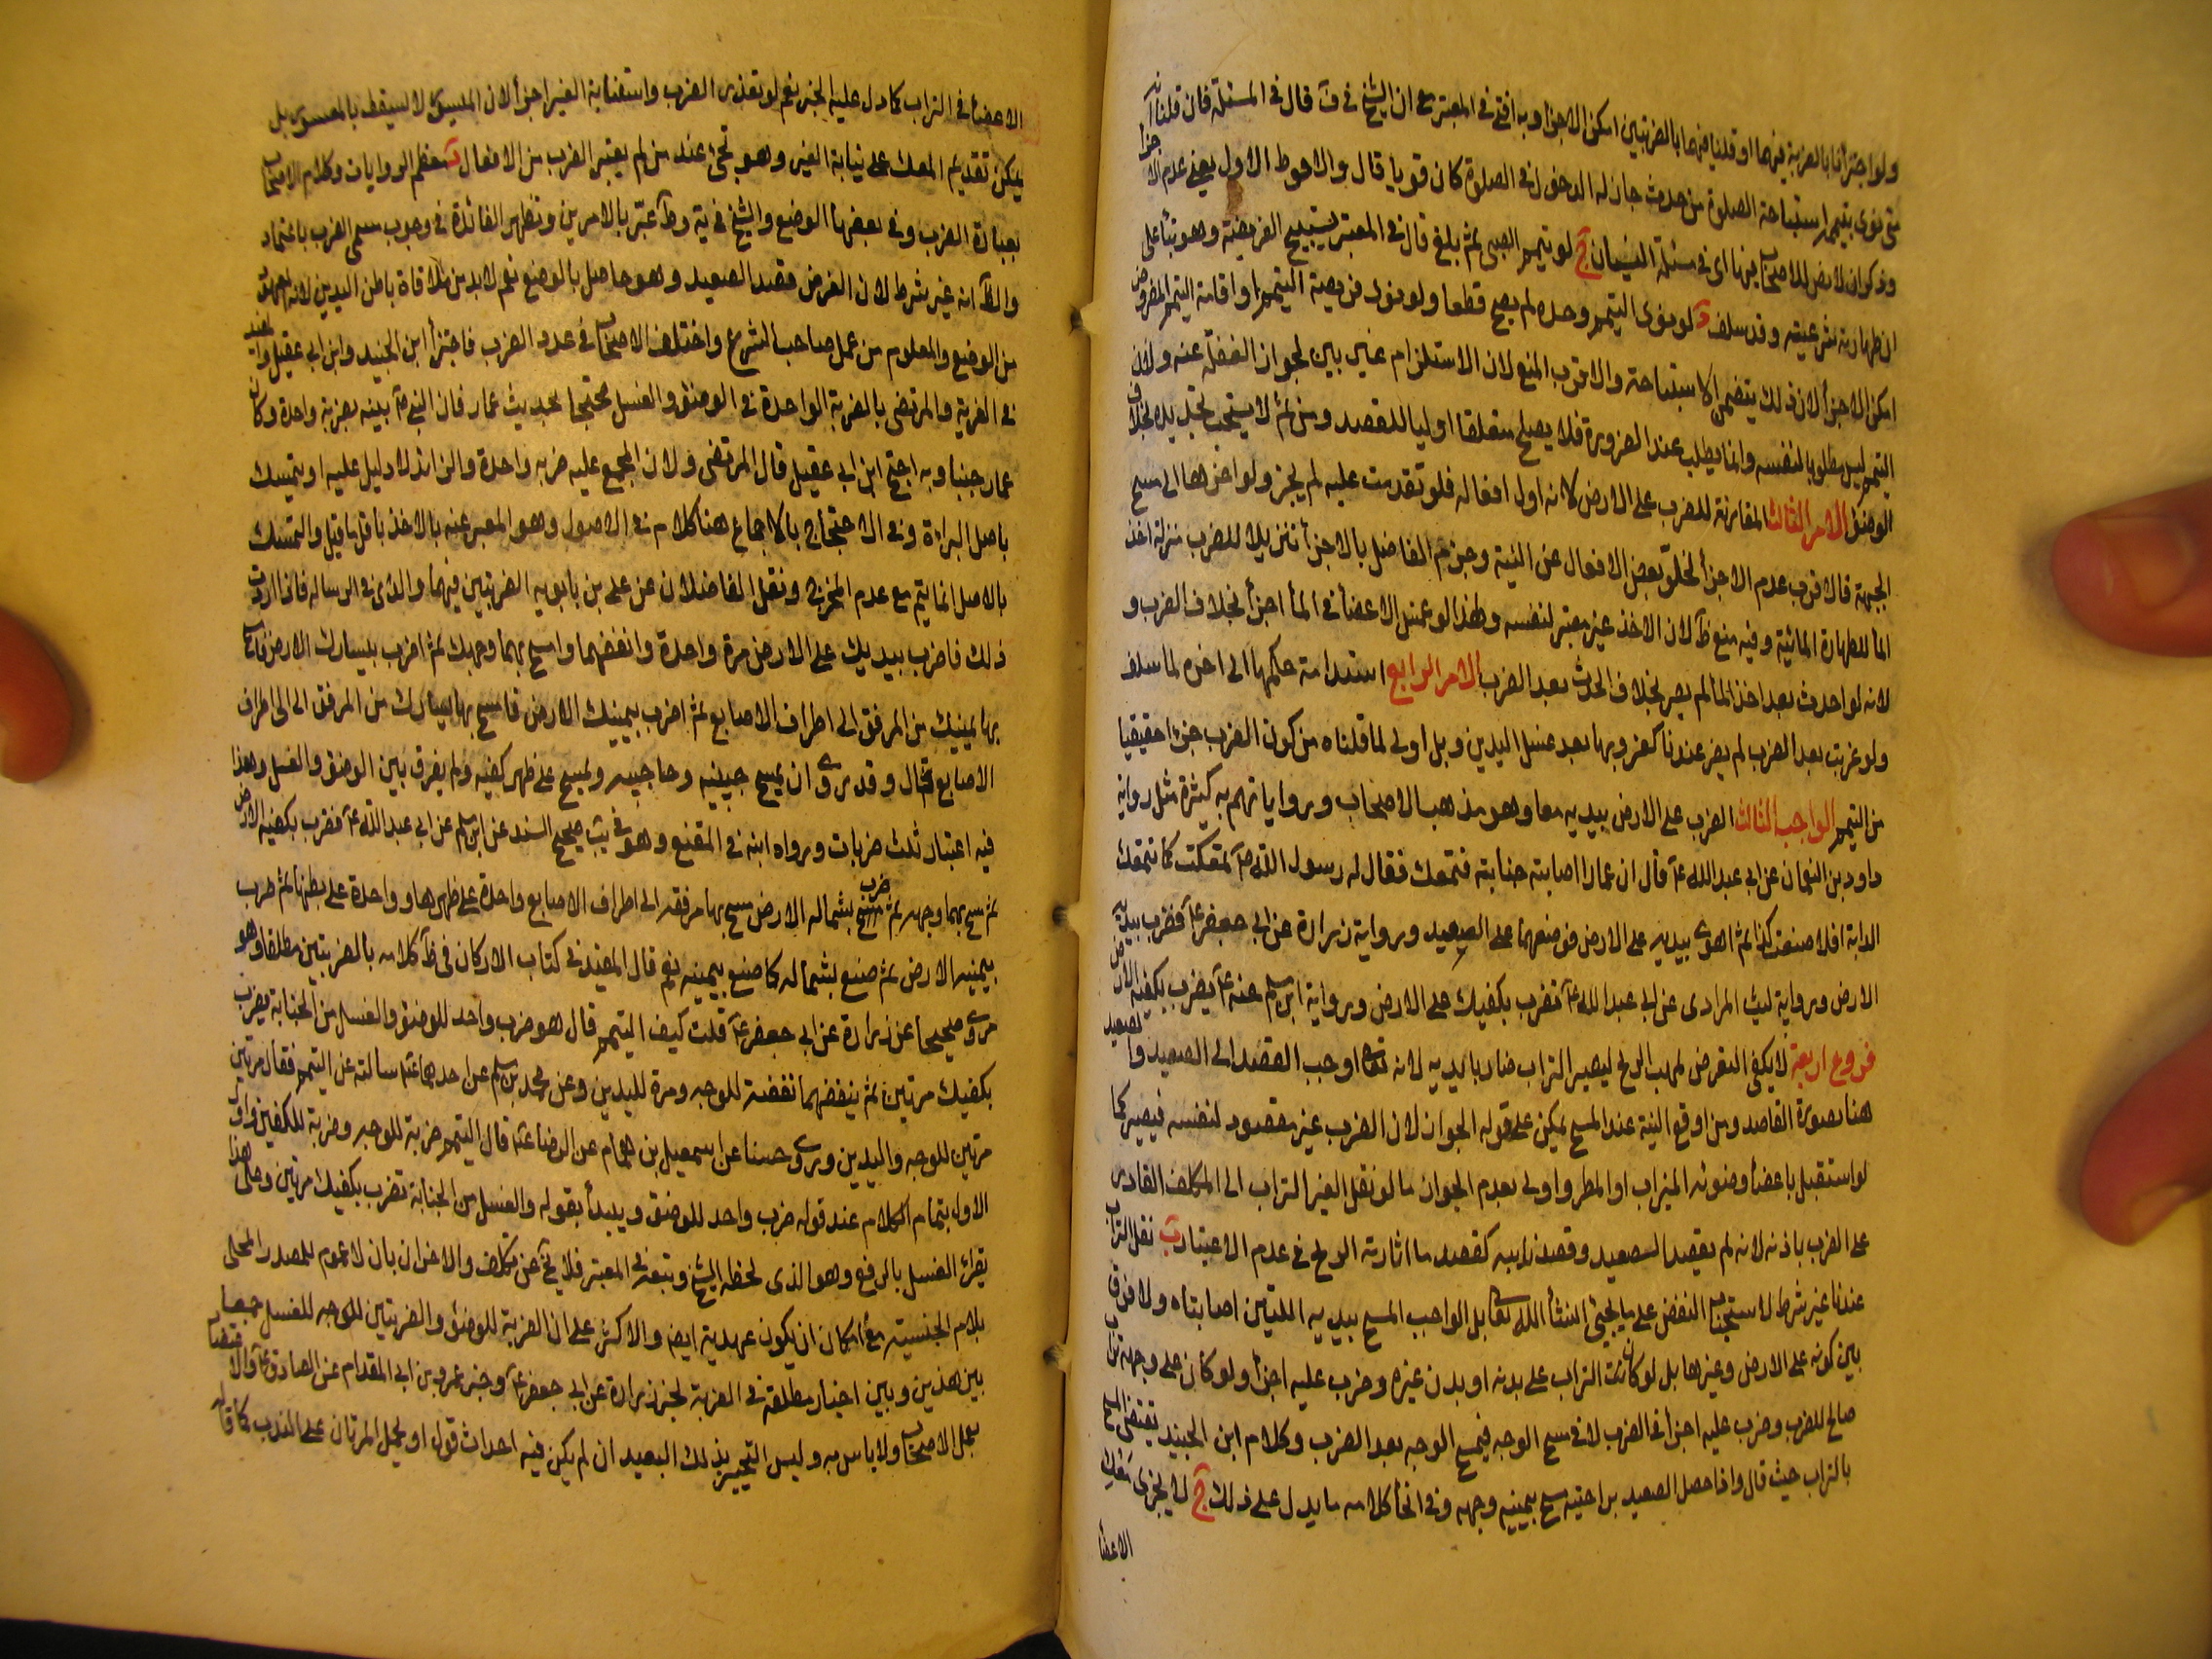 ولو اجتزأنا بالضربة فيهما او قلنا فيهما بالضربتين امكن الاجزا وبه افتى في المعتبر مع ان الشيخ في ف قال في المسئلة فان قلنا انه
متى نوى بتيممه استباحة الصلوة من حدث جاز له الدخول في الصلوة كان قويا قال والاحوط الاول يعني عدم الاجزا
وذكر ان لا نص للاصحاب فيها اى في مسئلة النسيان ج لو تيمم الصبى ثم بلغ قال في المعتبر يستبيح الفريضة وهو بنأ على
ان طهارته شرعيته وقد سلف د لو نوى التيمم وحده لم يصح قطعا ولو نوى فريضة التيمم او اقامة التيمم المفروض
امكن الاجزأ لان ذلك يتضمن الاستباحة والاقرب المنع لان الاستلزام غير بين لجواز الغفلة عنه ولان
التيمم ليس مطلوبا لنفسه وانما يطلب عند الضرورة فلا يصلح متعلقا اوليا للقصد ومن ثم لا يستحب تجديده بخلاف
الوضؤ الامر الثالث المقارنة للضرب على الارض لانه اول افعاله فلو تقدمت عليه لم يجز ولو اخرها الى مسح
الجبهة فالاقرب عدم الاجزأ لخلو بعض الافعال عن النية وجزم الفاضل بالاجزأ تنزيلا للضرب منزلة اخذ
المأ للطهارة المائية وفيه منع ظ لان الاخذ غير معتبر لنفسه ولهذا لو غمس الاعضأ في المأ اجزأ بخلاف الضرب و
لانه لو احدث بعد اخذ المأ لم يضر بخلاف الحدث بعد الضرب الامر الرابع استدامة حكمها الى اخره لما سلف
ولو عزبت بعد الضرب لم يضر عندنا كعزوبها بعد غسل اليدين وبل اولى لما قلناه من كون الضرب جزءا حقيقيا
من التيمم الواجب الثالث الضرب على الارض بيديه معا وهو مذهب الاصحاب وروايا تهم به كثيرة مثل رواية
داود بن النعمان عن ابي عبد الله ع قال ان عمارا اصابته جنابة فتمعك فقال له رسول الله ص تمعكت كما تتمعك
الدابة افلا صنعت كذا ثم اهوى بيديه على الارض فوضعهما على الصعيد ورواية زرارة عن ابي جعفر ع فضرب بيديه
الارض ورواية ليث المرادى عن ابي عبد الله ع تضرب بكفيك على الارض ورواية ابن مسلم عنه ع فضرب بكفيه الارض
فروع اربعة لا يكفي التعرض لمهب الريح ليصير التراب ضاربا يديه لانه تعالى اوجب القصد الى الصعيد والصعيد
هنا بصورة القاصد ومن اوقع النية عند المسح يمكن على قوله الجواز لان الضرب غير مقصود لنفسه فيصير كما
لو استقبل باعضأ وضوئه الميزاب او المطر واولى بعدم الجواز ما لو نقل الغير التراب الى المكلف القادر
على الضرب باذنه لانه لم يقصد الصعيد وقصد نايبه كقصد ما اثارته الريح في عدم الاعتبار ب نقل التراب
عندنا غير شرط لاستحباب النفض على ما يجئ انشأ الله تعالى بل الواجب المسح بيديه اللتين اصابتاه ولا فرق
بين كونه على الارض وغيرها بل لو كانت التراب على بدنه او بدن غيره وضرب عليه اجزأ ولو كان على وجهه تراب
صالح للضرب وضرب عليه اجزأ في الضرب لا في مسح الوجه فيمسح الوجه بعد الضرب وكلام ابن الجنيد يقتضى المسح
بالتراب حيث قال واذا حصل الصعيد براحتيه مسح بيمينه وجهه وفي انحأ كلامه ما يدل على ذلك ج لا يجزى معك
الاعضأ
الاعضأ في التراب كما دل عليه الخبر نعم لو تعذر الضرب واستنابة الغير اجزأ لان الميسور لا يسقط بالمعسور بل
يمكن تقديم المعك على نيابة الغير وهو مجئ عند من لم يعتبر الضرب من الافعال د معظم الروايات وكلام الاصحاب
بعبارة الضرب وفي بعضها الوضع والشيخ في ية وط عبر بالامرين وتظهر الفائدة في وجوب مسمى الضرب باعتماد
والظ انه غير شرط لان الغرض قصد الصعيد وهو حاصل بالوضع نعم لا بد من ملاقاة باطن اليدين لانه المعهود
من الوضع والمعلوم من عمل صاحب الشرع واختلف الاصحاب في عدد الضرب فاجتزأ ابن الجنيد وابن ابي عقيل والمفيد
في الغرية والمرتضى بالضربة الواحدة في الوضؤ والغسل محتجا بحديث عمار فان النبي ص بينه بضربة واحدة وكان
عمار جنبا وبه احتج ابن ابي عقيل قال المرتضى ولان المجمع عليه ضربه واحدة والزائد لا دليل عليه او يتمسك
باصل البراءة وفي الاحتجاج بالاجماع هنا كلام في الاصول وهو المعبر عنه بالاخذ باقل ما قيل والتمسك
بالاصل انما يتم مع عدم المخرج ونقل الفاضلان عن على بن بابويه الضربتين فيهما والذى في الرساله فاذا اردت
ذلك فاضرب بيديك على الارض مرة واحدة وانفضهما وامسح بهما وجهك ثم اضرب بيسارك الارض فامسح
بها يمينك من المرفق الى اطراف الاصابع ثم اضرب بيمينك الارض فامسح بها يسارك من المرفق الى اطراف
الاصابع قال وقد روى ان يمسح جبينيه وحاجبيه ويمسح على ظهر كفيه ولم يفرق بين الوضؤ والغسل وهذا
فيه اعتبار ثلث ضربات ورواه ابنه في المقنع وهو في يب صحيح السند عن ابن مسلم عن ابي عبد الله ع فضرب بكفيه الارض
ثم مسح بهما وجهه ثم ضرب بشماله الارض مسح بها مرفقه الى اطراف الاصابع واحدة على ظهرها وواحدة على بطنها ثم ضرب
بيمينه الارض ثم صنع بشماله كما صنع بيمينه نعم قال المفيد في كتاب الاركان في ظ كلامه بالضربتين مطلقا وهو
مروى صحيحا عن زرارة عن ابي جعفر ع قلت كيف التيمم قال هو ضرب واحد للوضؤ والغسل من الجنابة تضرب
بكفيك مرتين ثم ينفضهما نفضة للوجه ومرة لليدين وعن محمد بن مسلم عن احدهما ع سالته عن التيمم فقال مرتين
مرتين للوجه واليدين وروى حسنا عن اسمعيل بن همام عن الرضا ع قال التيمم ضربة للوجه وضربة للكفين واول
الاول بتمام الكلام عند قوله ضرب واحد للوضؤ ويبدأ بقوله والغسل من الجنابة تضرب بكفيك مرتين وعلى هذا
يقرأ الغسل بالرفع وهو الذى لحظه الشيخ وتبعه في المعتبر فلا يخ عن تكلف والاخران بان لا عموم للمصدر المحلى
بلام الجنسيته مع امكان ان يكون عهدية ايضا والاكثر على ان الضربة للوضؤ والضربتين للوجه للغسل جمعا
بين هذين وبين اخبار مطلقة في الضربة لخبر زرارة عن ابي جعفر ع وخبر عمرو بن ابي المقدام عن الصادق ع والا
بعمل الاصحاب ولا باس به وليس التخيير بذلك البعيد ان لم يكن فيه احداث قول او يحمل المرتان على الندب كما قاله